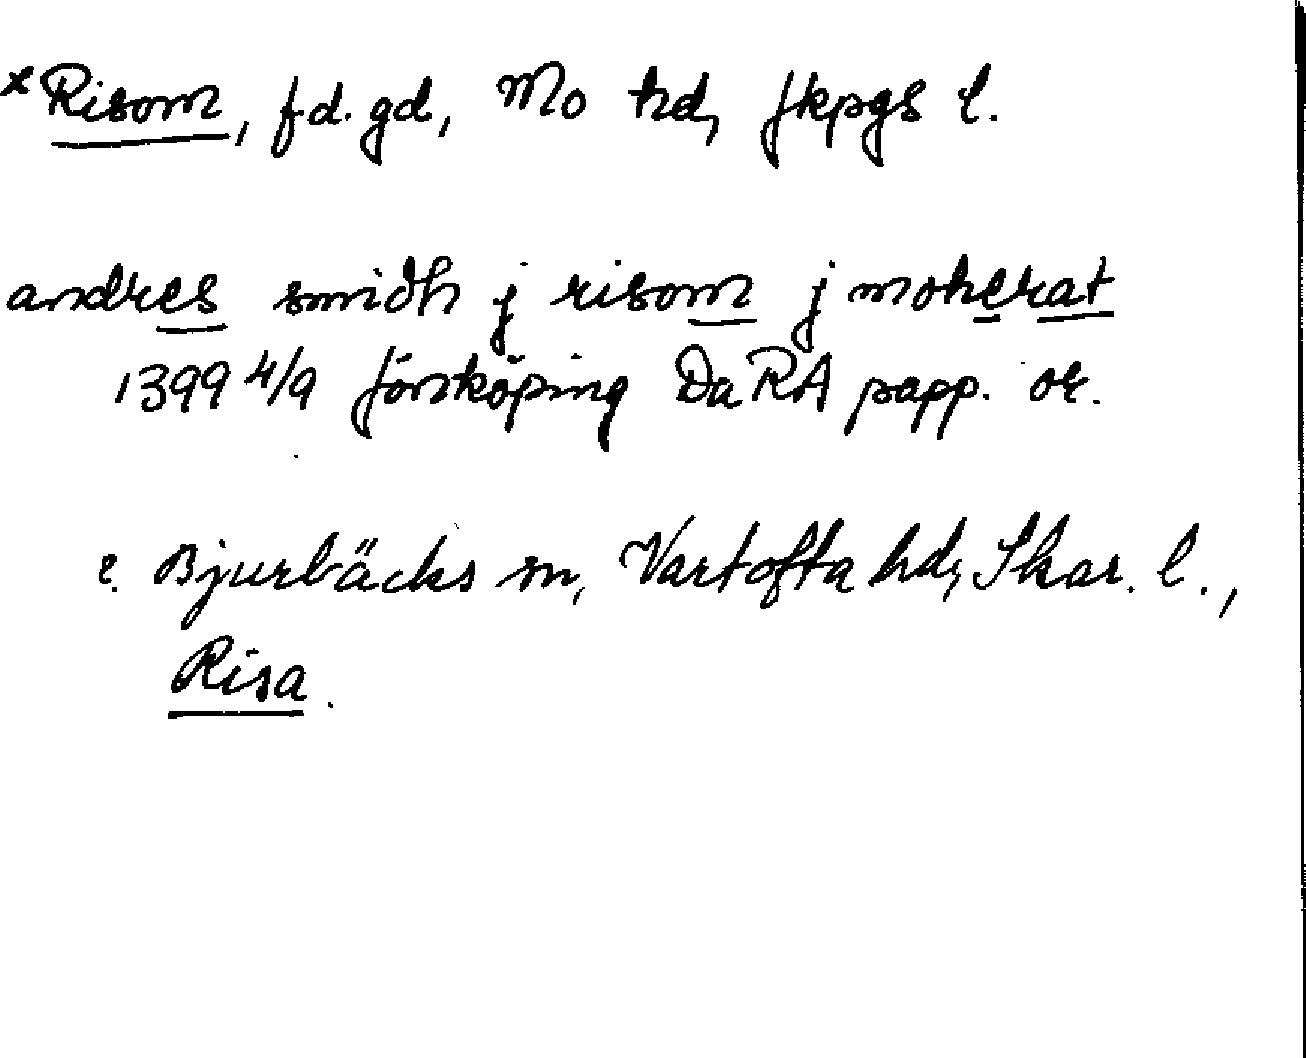 *Risom, f d. gd, Mo hd, Jkpgs l.
andres smidh j risom j moherat
1399 4/9 Jönköping DaRA papp. or.
?. Bjurbäcks sn, Vartofta hd, Skar. l.,
Risa.